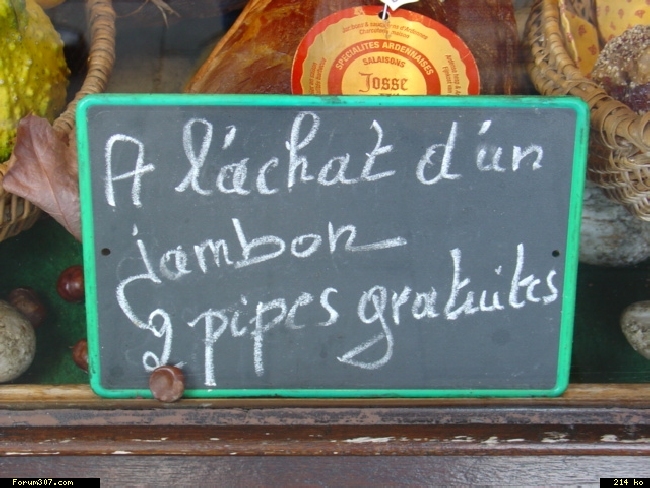 SPÉCIALITÉS ARDENNAISES
SALAISONS
Josse
A l'àchat d'un
jambon
2 pipes gratuites
Forum307.com
214 ko